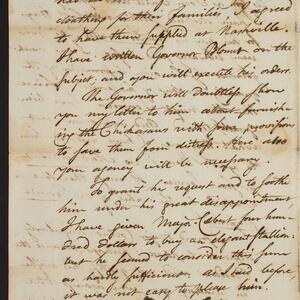 clothing for their families I agreed
to have them supplied at Nashville.
I have written Governor Blount on the
subject, and you will execute his orders.
The Governor will doubtless show
you my letter to him about furnish-
ing the Chickasaws with some provisions
to save them from distress. Here also
your agency will be necessary.
To grant his request and to soothe
him under his great disappointment
I have given Major Colbert four hun-
dred dollars to buy an elegant stallion.
but he seemed to consider this sum
as hardly sufficient. as I said before
it was not easy to please him.